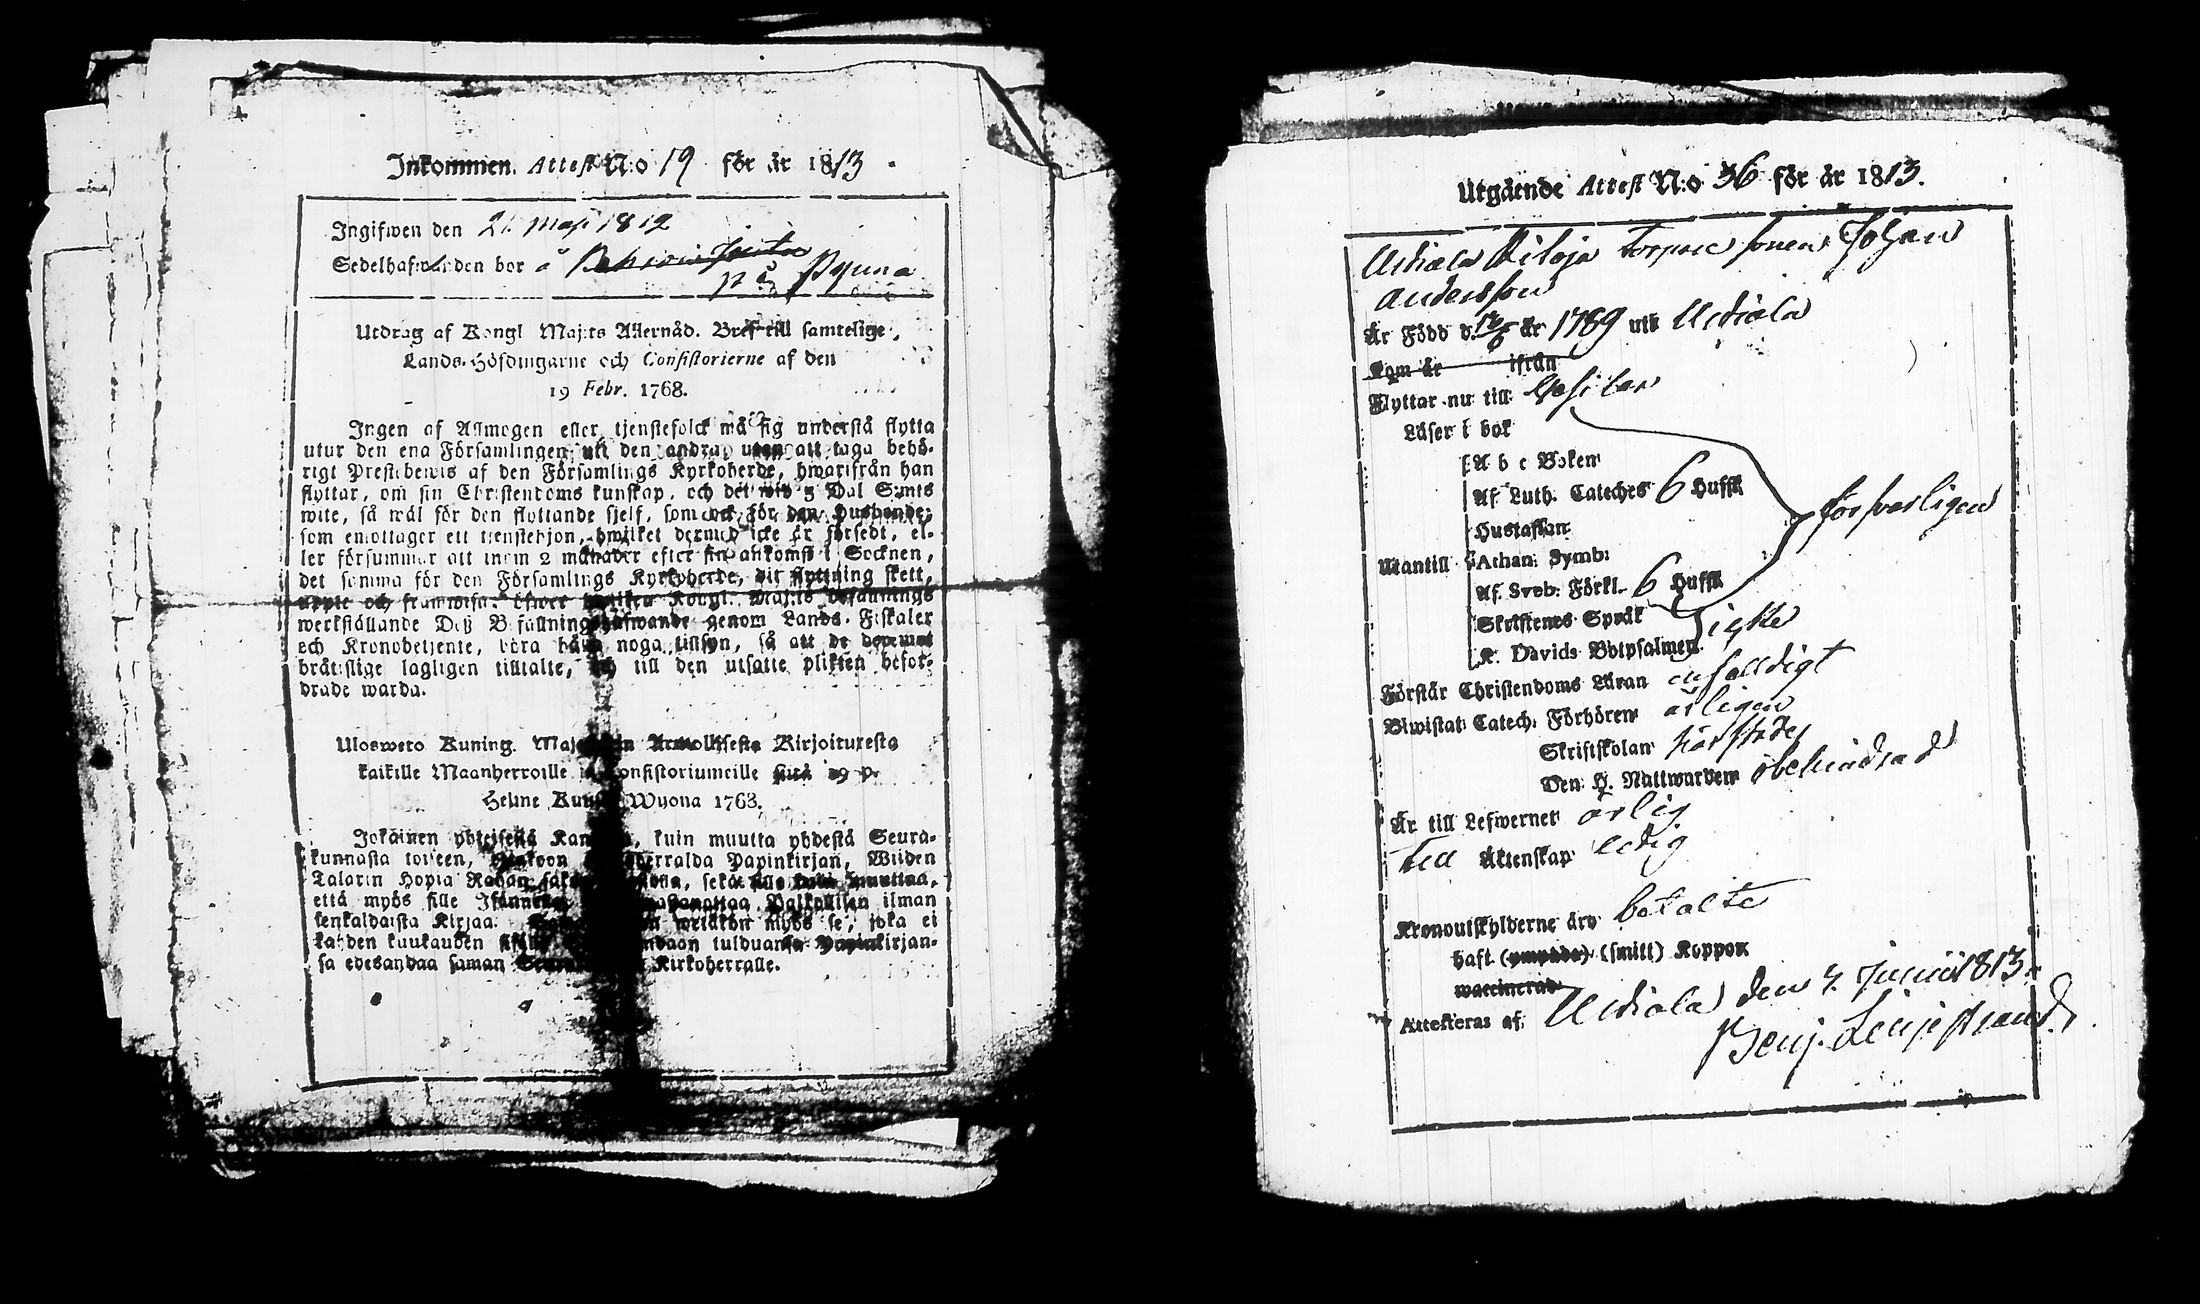 Inkommen. Attest N:o 19 för år 1813
Ingifwen den 21 Maji 1812
Sedelhafwanden bor å
på Pyuna
Utdrag af Kongl Maj:ts Allernåd. Bref till samtelige,
Lands-Höfdingarne och Consistorierne af den
19 Febr. 1768.
Ingen af Allmogen eller tjenstefolck må sig understå flytta
utur den ena Församlingen uti den andra, utan att taga behö-
rigt Prestebewis af den Församlings Kyrkoherde, hwarifrån han
flyttar, om sin Christendoms kunskap, och det wid 5 Dal S:mts
wite, så wäl för den flyttande sjelf, som ock för den Husbonde,
som emottager ett tjenstehjon, hwilket dermed icke är försedt, el-
ler försummar att inom 2 månader efter sin ankomst i Socknen,
det samma för den Församlings Kyrkoherde, dit flyttning skett,
uppte och framwisa: öfwer hwilken Kongl. Maj:ts Befallnings
werkställande Deß Befallningshafwande genom Lands-Fiskaler
och Kronobetjente, böra hafwa noga tillsyn, så att de deremot
brätslige lagligen tilltalte, och till den utsatte plikten befor-
drade warda.
Ulosweto Kuning. Maj Armollisesta Kirjoituresta
kaikille Maanherroille ja Consistoriumeille siitä 19 p.
Helme Kuus Wuona 1768.
Jokainen yhteisestä Kan kuin muutta yhdestä Seura-
kunnasta toiseen, Ottakoon herralda Papinkirjan, Wiiden
Talarin Hopia Rahan sekä sille muuttaa,
että myös sille Isännälle Palkollisen ilman
senkaldaista Kirjaa. wetäkön myös se, joka ei
kahden kuukauden tulduansa Papinkirjan-
sa edesandaa saman Kirkoherralle.
Utgående Attest N:o 36 för år 1813.
Urdiala Torpare sonen Johan
Andersson
Är Född d. 16/6 år 1789 uti Urdiala
Kom år ifrån
Flyttar nu till
Läser i bok
A b c Boken
Af Luth. Cateches 6 Huffst
Hustaflan
Utantill Athan: Symb:
Af Sveb: Förkl. 6 Huffst
försvarligen
Skriftenes Språk
K. Davids Botpsalmer icke
Förstår Christendoms Läran enfalldigt
Biwistat: Catech: Förhören årligen
Skriftskolan
Den H. Nattwarden obehindrad
Är till Lefwernet ärlig
Till Äktenskap ledig
Kronoutskylderne äro betalte
haft (ympade) (smitt) Koppor
waccinerad
Attesteras af: Urdiala den 7. Junii 1813.
Benj. Liljestrand.